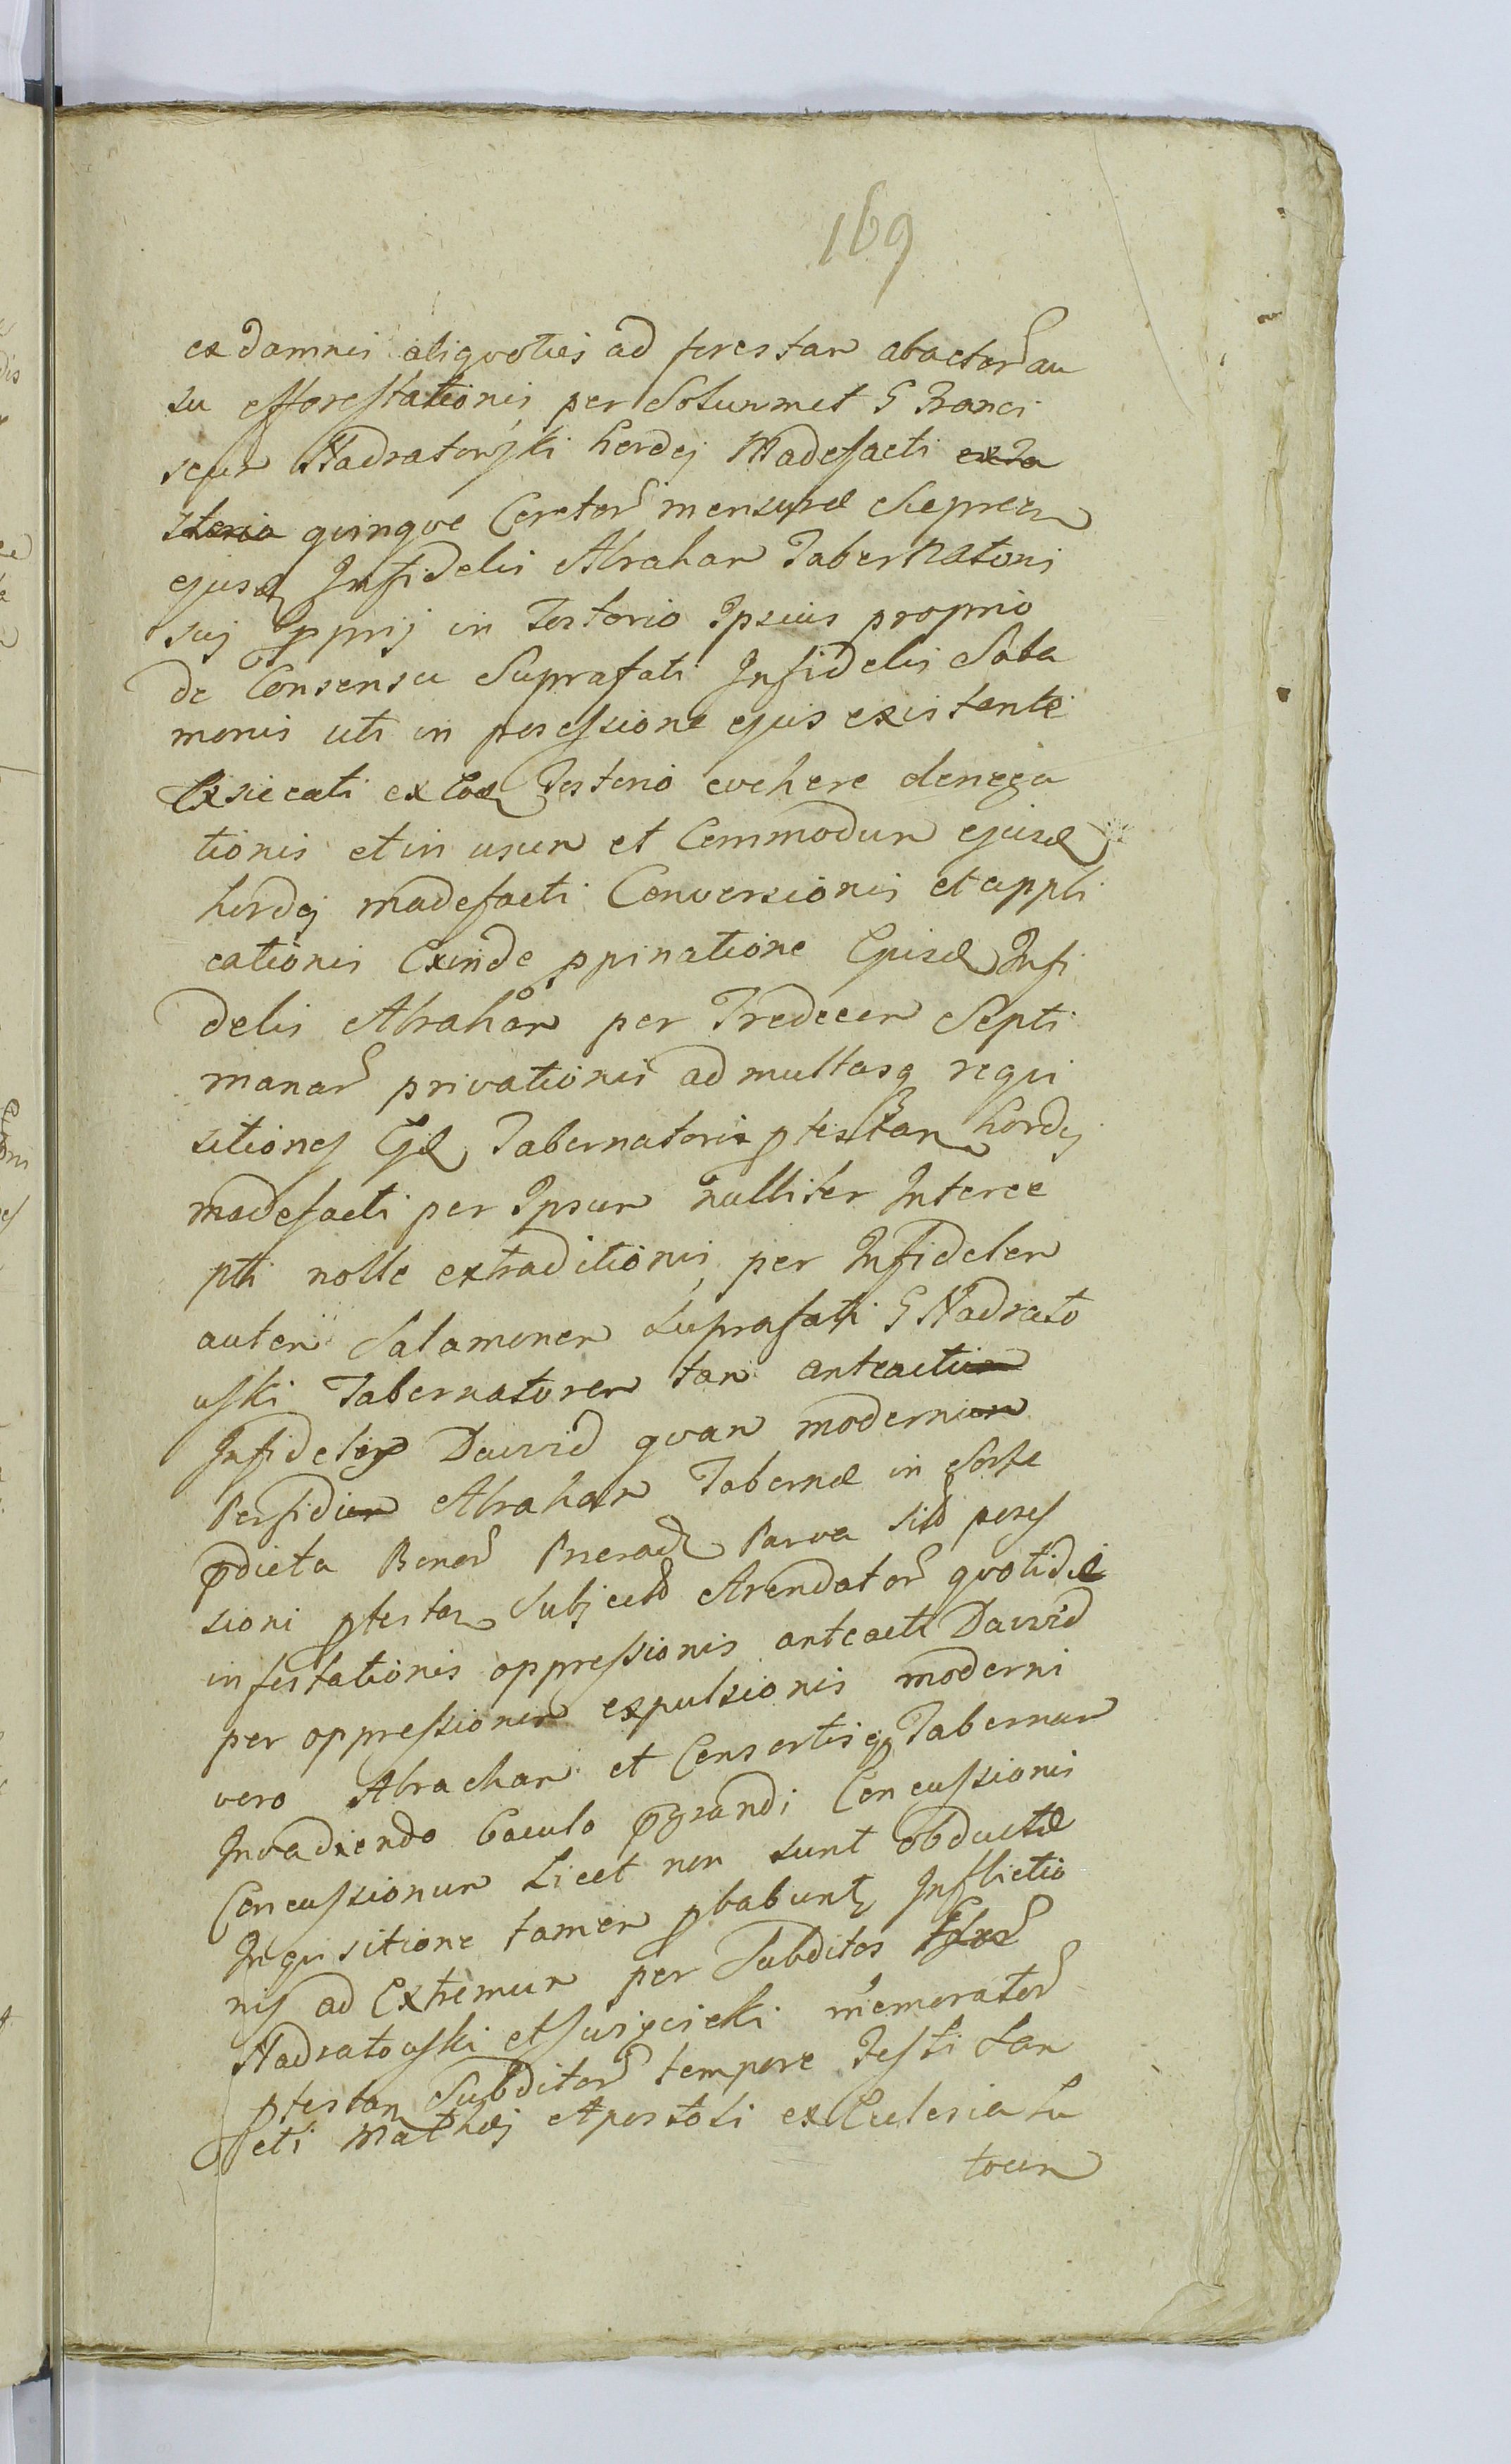 169
ex damnis aliqvoties ad forestam abactor au
su efforestationis per Solummet G Franci
scum Nadratowski hordej Madefacti exta
steria qvinqve Coretor mensuræ Sieprcen
ejusd Infidelis Abraham Tabernatoris
suj pprij in Tostorio Ipsius proprio
de Consensu Suprafati Infidelis Sala
monis uti in possessione ejus existenti
Exsiccati ex eod Tostorio evehere denega
tionis et in usum et Commodum ejusd
hordej madefacti Conversionis et appli
cationis Exinde ppinatione Ejusd Infi
delis Abraham per Tredecem Septi
manar privationis ad multasq reqvi
sitiones Ejd Tabernatoris ptestan hordej
madefacti per Ipsum nulliter Interce
pti nolle extraditionis per Infidelem
autem Salamonem suprafati G Nadrato
wski Tabernatorem tam anteactum
Infidelis Dawid qvam modernum
Perfidum Abraham Tabernæ in Sorte
pdicta Bonor Pierad Parva sub posses
sioni ptestan Subject Arendator qvotidiæ
infestationis oppressionis anteacti Dawid
per oppressionem expulsionis moderni
vero Abracham et Consortis ejus Tabernam
Invadiendo baculo pgrandi Concussionis
Concussionum Licet non sunt obductæ
Inqvisitione tamen pbabunt Inflictio
nis ad Extremum per Subditos
Nadratowski et memorator
ptestan Subditor tempore Festi San
cti Mathæj Apostoli ex Ecclesia Lu
tocin